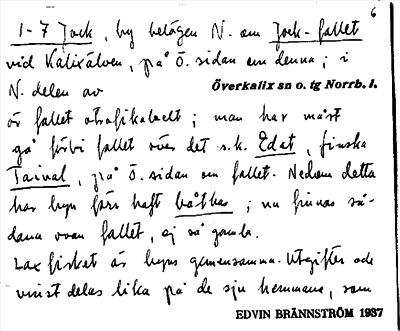 6
1-7 Jock, by belägen N. om Jock-fallet
vid Kalixälven, på Ö. sidan om denna; i
N. delen av
Överkalix sn o. tg Norrb. l.
är fallet otrafikabelt; man har måst
gå förbi fallet över det s.k. Edat, finska
Taival, på Ö. sidan om fallet. Nedom detta
har byn förr haft båthus; nu finnas så-
dana ovan fallet, ej så gamla.
Laxfisket är byns gemensamma. Utgifter och
vinst delas lika på de sju hemmans, som
EDVIN BRÄNNSTRÖM 1937